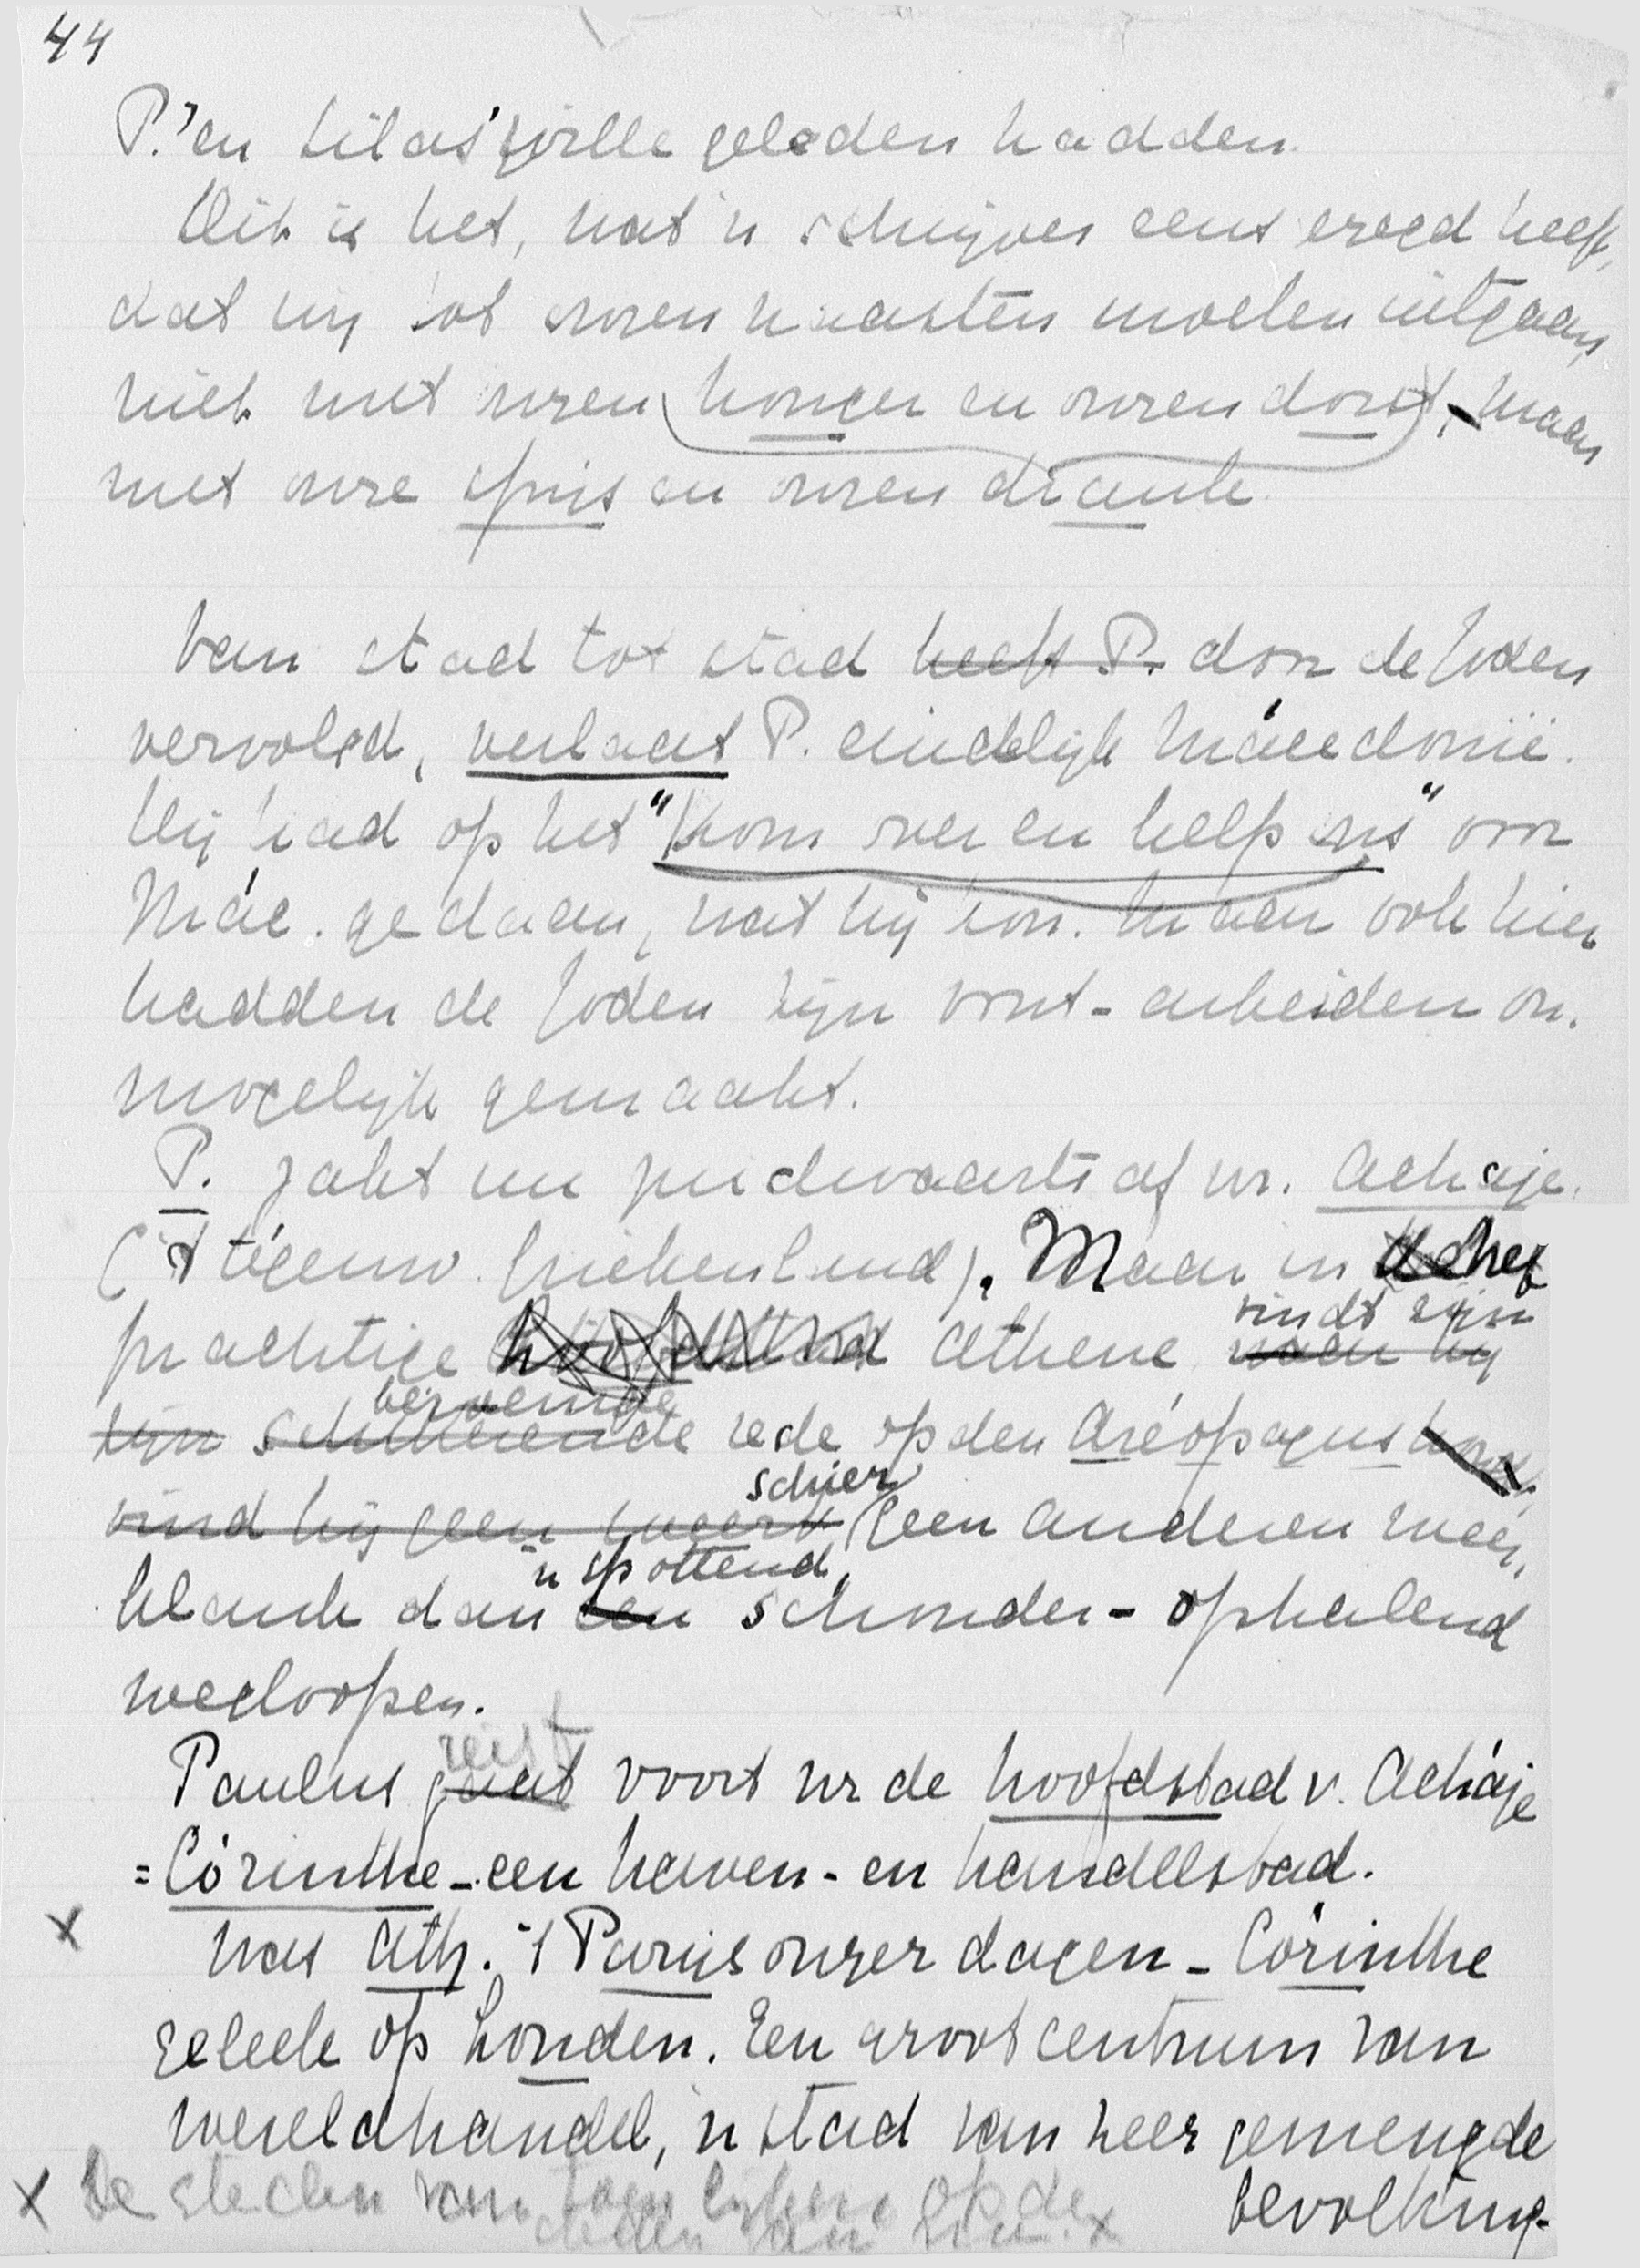 44
P. en Silas' wille geleden hadden.
Dit is het, wat 'n schrijver eens gezegd heeft,
dat wij tot onzen naasten moeten uitgaan,
niet met onzen honger en onzen dorst, maar
met onze spijs en onzen drank.
Van stad tot stad heeft P. door de Joden
vervolgd, verlaat P. eindelijk Mácedonië.
Hij had op het "Kom over en help ons" voor
Mác. gedaan, wat hij kon. Maar ook hier
hadden de Joden zijn voort-arbeiden on-
mogelijk gemaakt.
P. zakt nu zuidwaarts af nr. Achaje.
(± 't tegenw. Griekenland). Maar in het
prachtige Athene vindt zijn
beroemde rede op den Aréopagus
schier geen anderen weer-
klank dan 'n spottend, schouder-ophalend
wegloopen.
Paulus reist voort nr de hoofdstad v. Achaje
= Córinthe - een haven- en handelsstad.
x was Ath. 't Parijs onzer dagen - Córinthe
geleek op Londen. Een groot centrum van
wereldhandel, 'n stad van zeer gemengde
bevolking.
x De steden van toen lijken op de
steden van nu. x